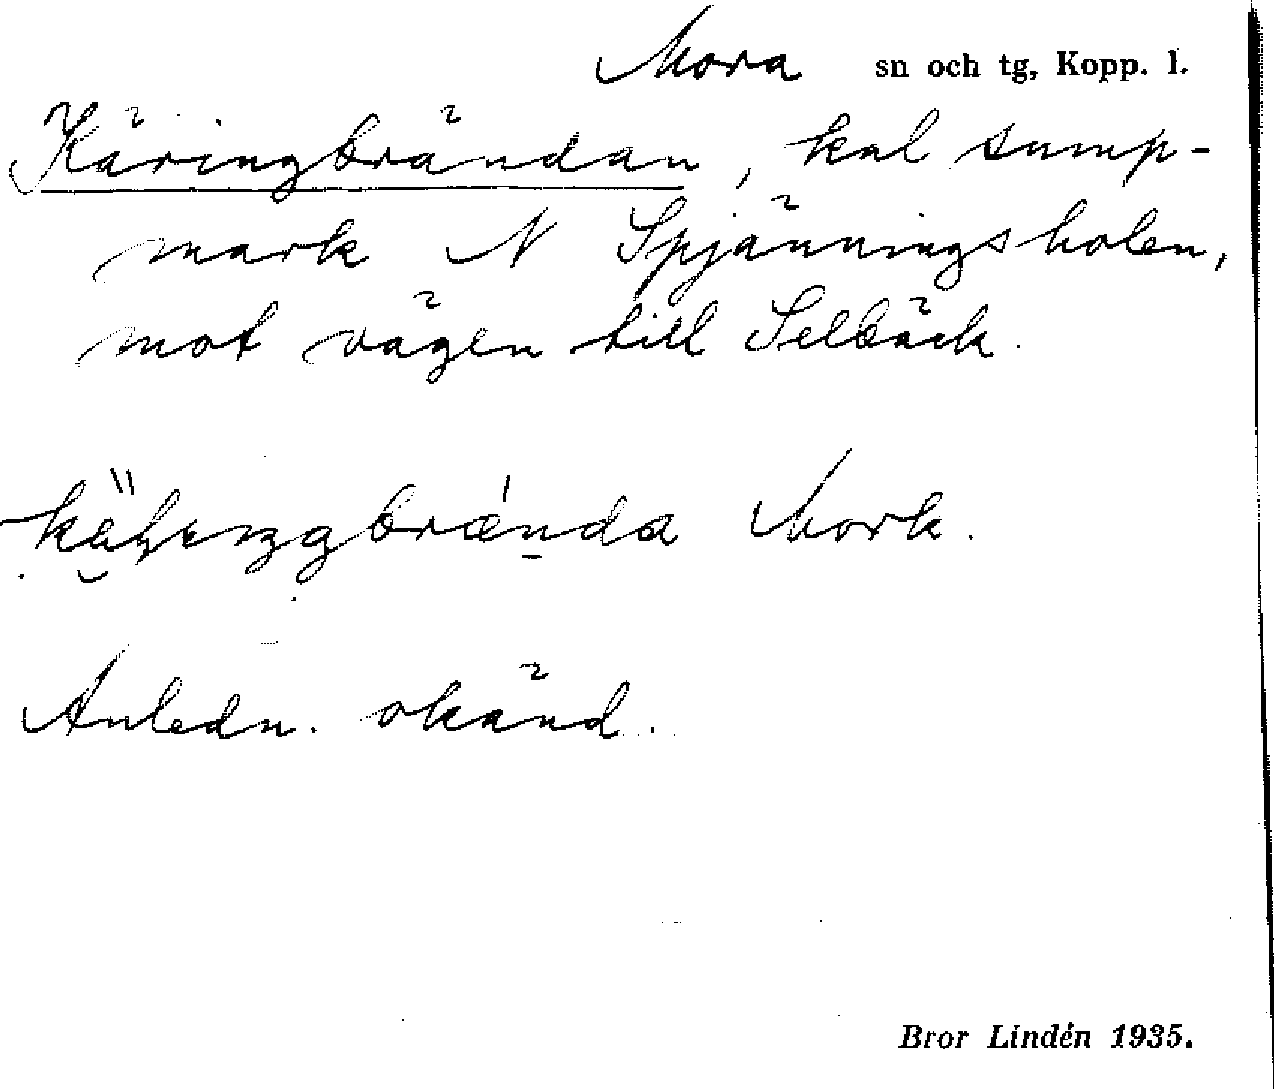 Mora sn och tg, Kopp. l.
Käringbrändan, kal sump-
mark N Spjänningsholen,
mot vägen till Selbäck.
Mork.
Anledn. okänd.
Bror Lindén 1935.